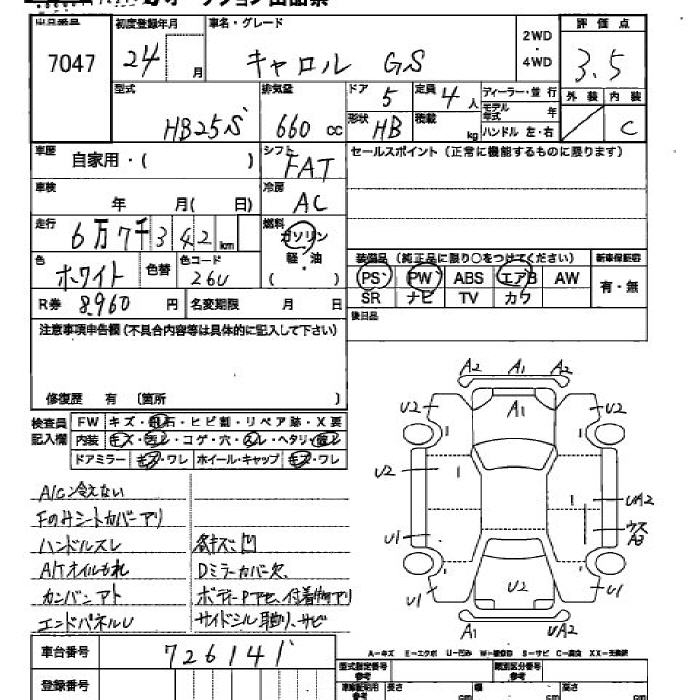 オークション出品票
出品番号 初度登録年月 車名・グレード 2WD・4WD 評価点
7047 24 月 キャロル GS 3.5
型式 排気量 ドア 5 定員 4人 ディーラー・並行 外装 内装
モデル年式 年
HB25S 660 cc 形状 HB 積載 kg ハンドル 左・右 C
車歴 自家用・( ) シフト FAT セールスポイント(正常に機能するものに限ります)
車検 年 月( 日) 冷房 AC
走行 6万7千342km 燃料 ガソリン
軽・油
( )
色 ホワイト 色替 色コード 26U
装備品(純正品に限り○をつけてください) 新車保証書
PS PW ABS エアB AW 有・無
SR ナビ TV カワ
R券 8,960 円 名変期限 月 日 後日品
注意事項申告欄(不具合内容等は具体的に記入して下さい)
修復歴 有 〔箇所 〕
検査員記入欄 FW キズ・飛石・ヒビ割・リペア跡・X要
内装 キズ・ヨゴレ・コゲ・穴・スレ・ヘタリ・
ドアミラー キズ・ワレ ホイール・キャップ キズ・ワレ
A/C冷えない
Fのみシートカバーアリ
ハンドルスレ 各キズ凹
A/Tオイルもれ Dミラーカバー欠
カンバンアト ボデーPアセ、付着物アリ
エンドパネルU サイドシル取り、サビ
A2 A1 A2
U2 A1 U2
U2 UA2
U1 ウスA3
U1 U2 U1
A1 UA2
車台番号 726141
登録番号
A-キズ E-エクボ U-凹み W-補修跡 S-サビ C-腐食 XX-交換跡
型式指定番号 類別区分番号
参考 長さ cm 幅 cm 高さ cm